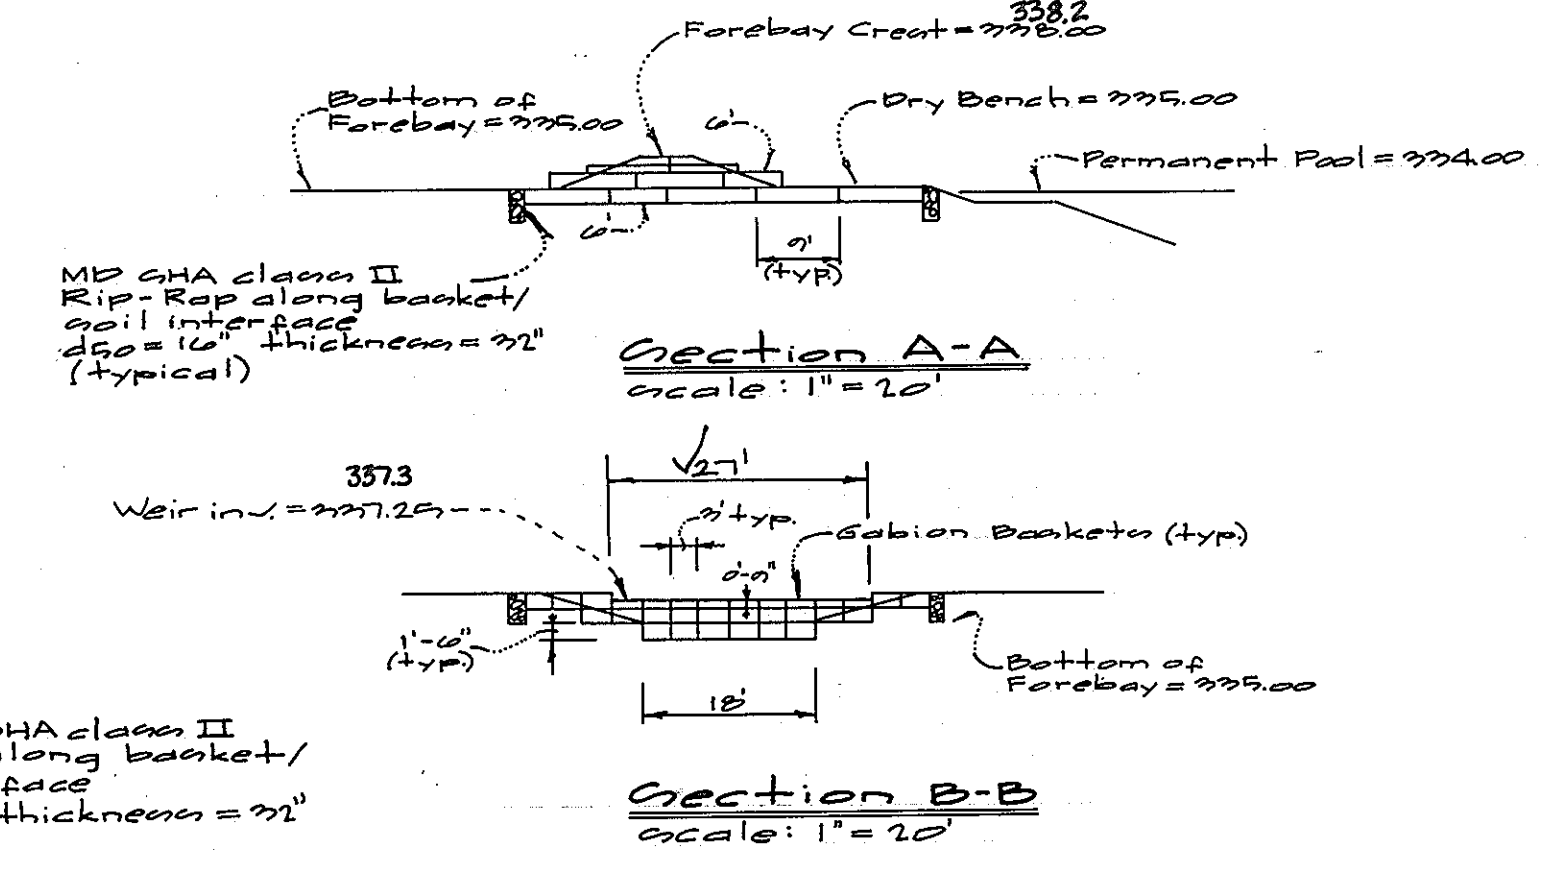 338.2
Forebay Crest = 338.00
Bottom of
Forebay = 335.00
6'
Dry Bench = 335.00
Permanent Pool = 334.00
6'
9'
(typ.)
MD SHA class II
Rip-Rap along basket/
soil interface
d50 = 16" thickness = 32"
(typical)
Section A-A
scale: 1" = 20'
√27'
337.3
Weir inv. = 337.25
3' typ.
Gabion Baskets (typ.)
0'-9"
1'-6"
(typ.)
Bottom of
Forebay = 335.00
18'
SHA class II
along basket/
face
thickness = 32"
Section B-B
scale: 1" = 20'